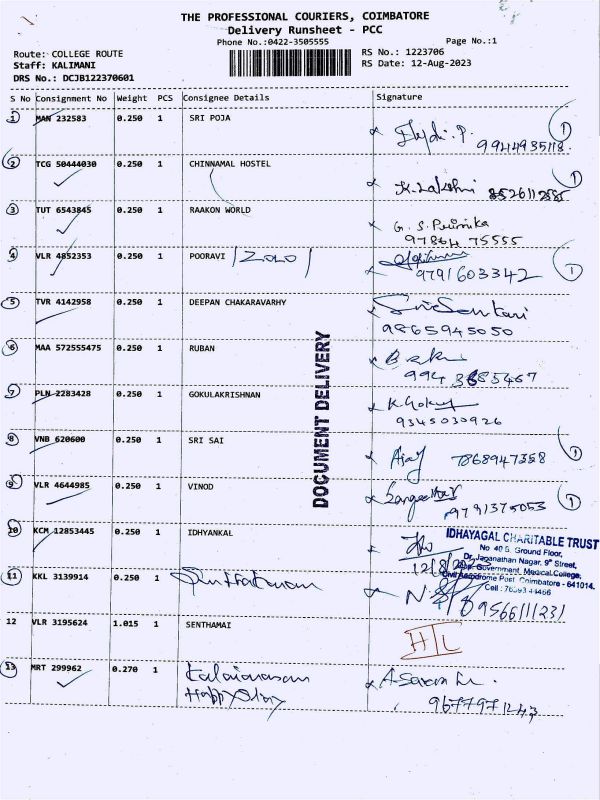 THE PROFESSIONAL COURIERS, COIMBATORE
Delivery Runsheet - PCC
Phone No.:0422-3505555
Page No.:1
Route: COLLEGE ROUTE
RS No.: 1223706
Staff: KALIMANI
RS Date: 12-Aug-2023
DRS No.: DCJB122370601
S No Consignment No Weight PCS Consignee Details Signature
1 MAN 232583 0.250 1 SRI POJA
9944935118 1
2 TCG 50444030 0.250 1 CHINNAMAL HOSTEL
K. Lakshmi 8526112585 1
3 TUT 6543845 0.250 1 RAAKON WORLD
G. S.
97864 75555
4 VLR 4852353 0.250 1 POORAVI
9791603342 1
5 TVR 4142958 0.250 1 DEEPAN CHAKARAVARHY
9865945050
6 MAA 572555475 0.250 1 RUBAN
7 PLN 2283428 0.250 1 GOKULAKRISHNAN
K. Gokul
9345030926
8 VNB 620600 0.250 1 SRI SAI
Ajay 7868947358 1
9 VLR 4644985 0.250 1 VINOD
9791375053 1
10 KCM 12853445 0.250 1 IDHYANKAL
IDHAYAGAL CHARITABLE TRUST
No 40 5, Ground Floor,
Dr. Jaganathan Nagar, 9th Street,
Government Medical College,
Civil Aerodrome Post, Coimbatore - 641014.
11 KKL 3139914 0.250 1
9566111231
12 VLR 3195624 1.015 1 SENTHAMAI
HTL
13 MRT 299962 0.270 1 Kalaiarasan
Happy Stay
9677971243
DOCUMENT DELIVERY